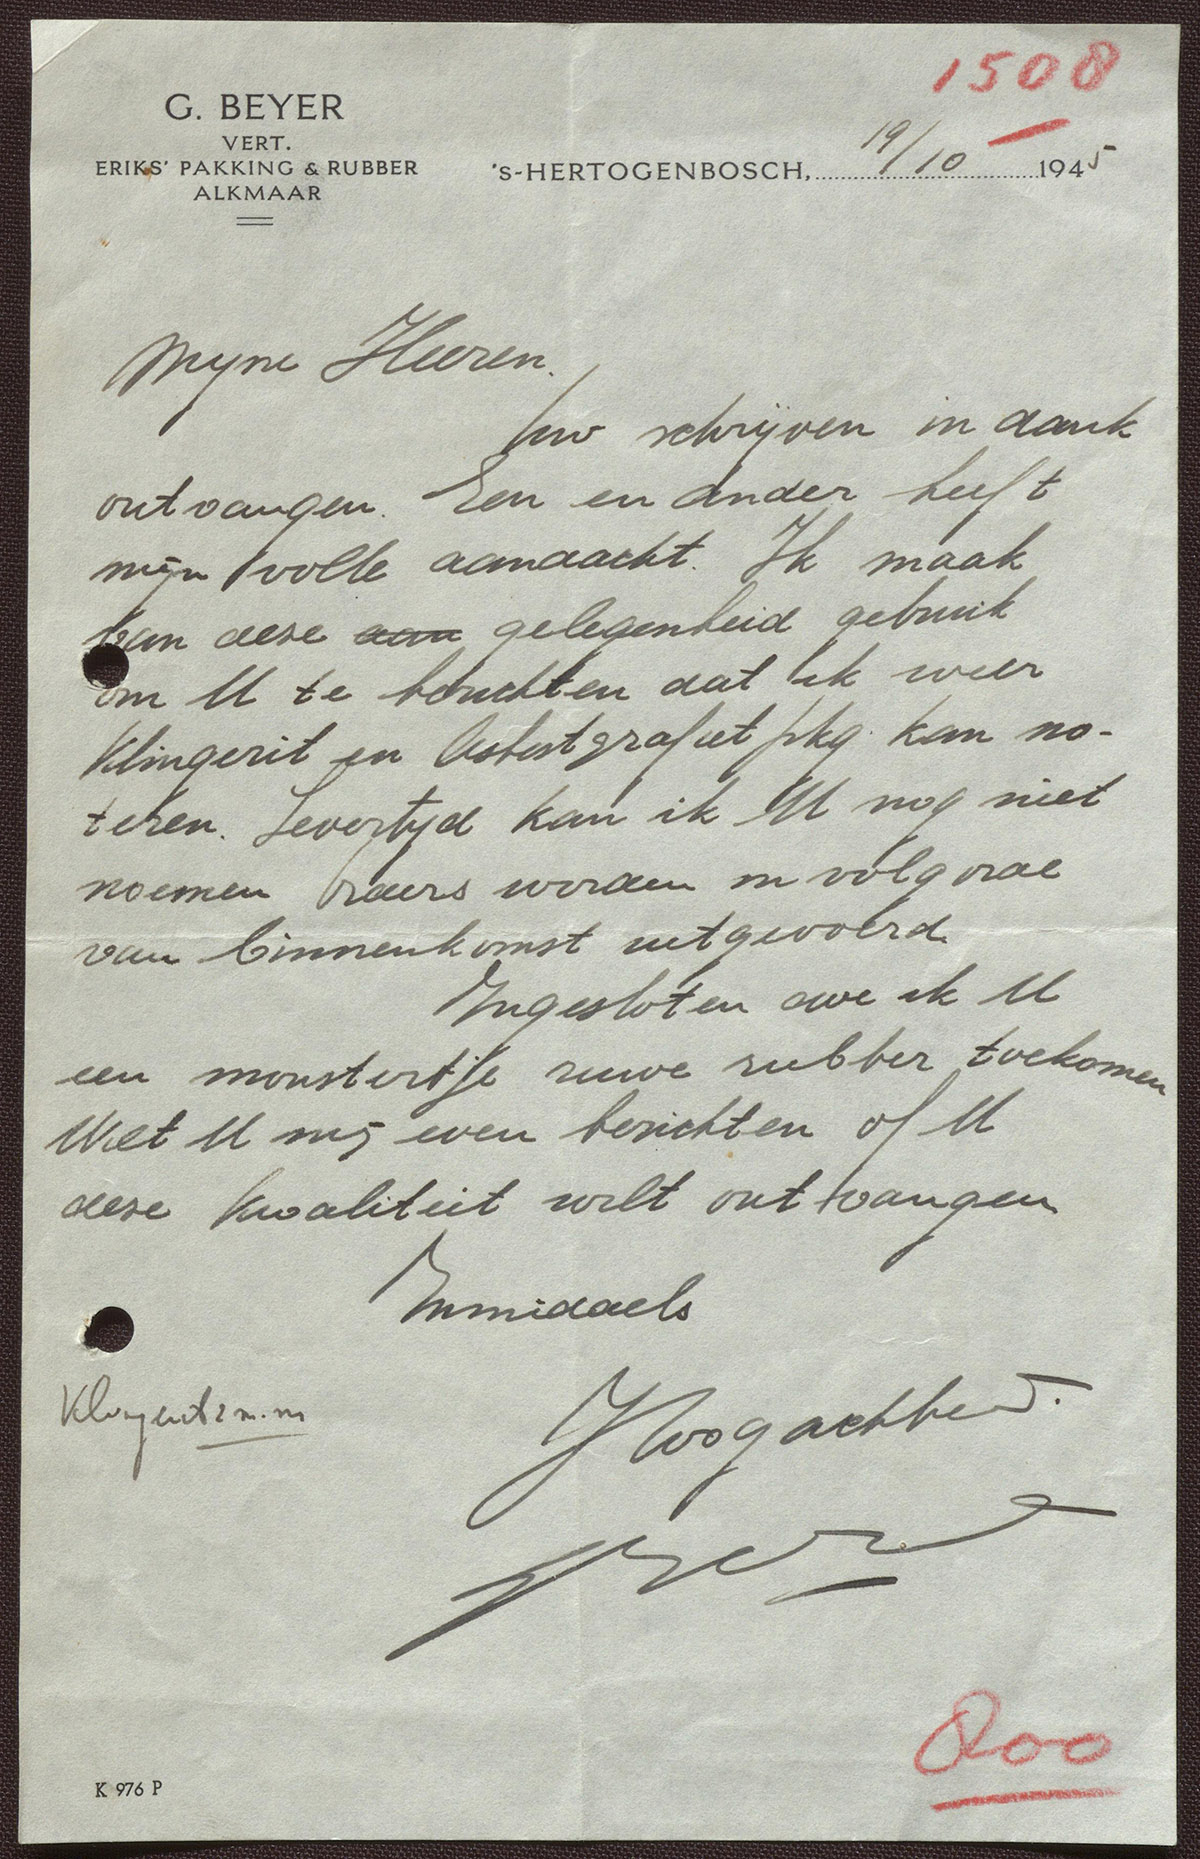 1508
G. BEYER
VERT.
ERIKS' PAKKING & RUBBER
ALKMAAR
's-HERTOGENBOSCH, 19/10 1945
Myne Heeren.
Uw schrijven in dank
ontvangen. Een en ander heeft
mijn volle aandacht. Ik maak
van deze aan gelegenheid gebruik
om U te berichten dat ik weer
Klingerit en Asbestgrafiet pkg. kan no-
teren. Levertyd kan ik U nog niet
noemen orders worden in volgorde
van binnenkomst uitgevoerd.
Ingesloten doe ik U
een monstertje ruwe rubber toekomen
Wilt U mij even berichten of U
deze kwaliteit wilt ontvangen
Inmiddels
Hoogachtend.
Klingerit 2 m.m
K 976 P